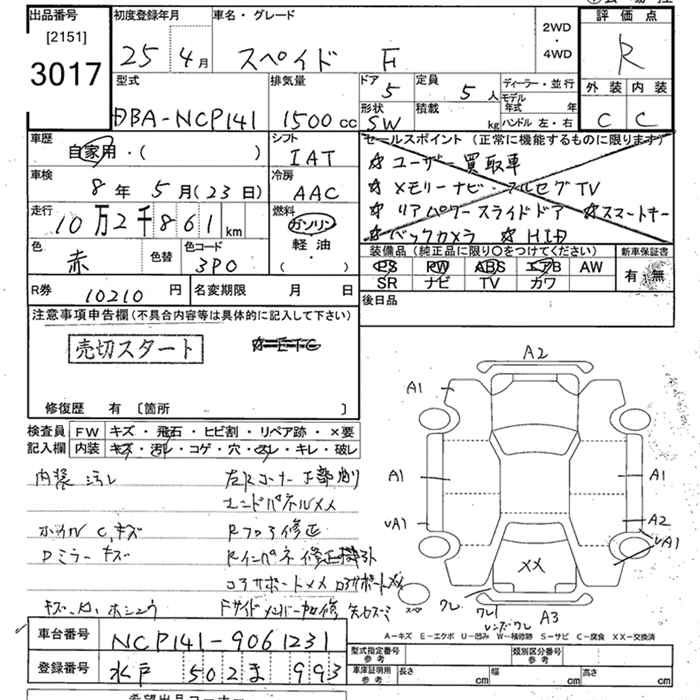 出品番号
[2151]
3017
初度登録年月
25年4月
車名・グレード
スペイド F
2WD
・
4WD
評価点
R
外装 内装
C C
型式
DBA-NCP141
排気量
1500cc
ドア
5
定員
5人
ディーラー・並行
モデル年式 年
形状
SW
積載
kg
ハンドル 左・右
車歴
自家用・( )
シフト
IAT
セールスポイント(正常に機能するものに限ります)
☆ユーザー買取車
☆メモリーナビ・フルセグTV
☆リアパワースライドドア ☆スマートキー
☆バックカメラ ☆HID
車検
8年5月(23日)
冷房
AAC
走行
10万2千861km
燃料
ガソリン
軽油
( )
色
赤
色替
色コード
3P0
装備品(純正品に限り○をつけてください)
PS PW ABS エアB AW
SR ナビ TV カワ
新車保証書
有・無
R券
10210円
名変期限 月 日
後日品
注意事項申告欄(不具合内容等は具体的に記入して下さい)
売切スタート
☆ETC
修復歴 有 [箇所 ]
検査員
記入欄
FW キズ・飛石・ヒビ割・リペア跡・×要
内装 キズ・汚レ・コゲ・穴・スレ・キレ・破レ
内装 汚レ
左Rコーナー下部削リ
エンドパネルメメ
ホイルC、キズ
Rフロア修正
Dミラーキズ
Rインパネ修正
コアサポートメメ
Fサイドメンバー
A2
A1
A1
A1
UA1
A2
UA1
XX
スペ
ワレ
A3
A-キズ E-エクボ U-凹み W-補修跡 S-サビ C-腐食 XX-交換済
車台番号
NCP141-9061231
登録番号
水戸 502 ま 993
型式指定番号
参考
類別区分番号
参考
車庫証明用
参考
長さ cm 幅 cm 高さ cm
希望出品コーナー